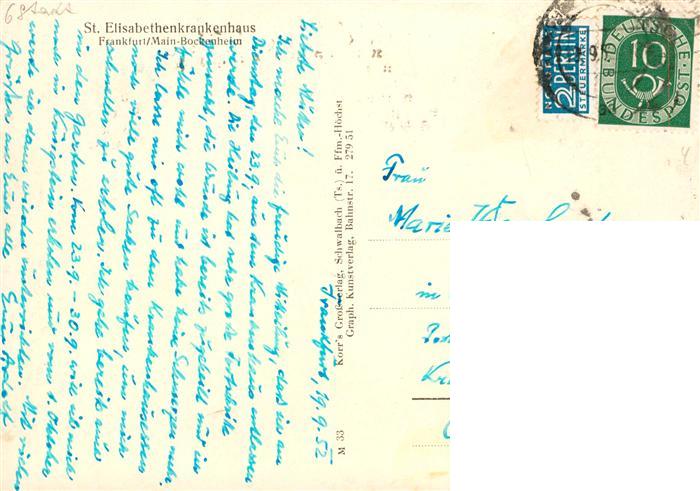 68 Stadt
St. Elisabethenkrankenhaus
Frankfurt/Main-Bockenheim
Frankfurt, 19.9.52
Ihr Lieben!
Ich möchte Euch die freudige Mitteilung, daß ich am
Dienstag, den 23.9. aus dem Krankenhaus entlassen
werde. Die Heilung hat sehr große Fortschritte
gemacht, die Wunde ist bereits zugeheilt und ich
fühle mich wohl und habe keine Schmerzen mehr.
Ich kann mir oft zu dem Krankenhausessen
noch viele gute Sachen kaufen, um mich
schneller zu erholen. Ich gehe bereits aus
in den Garten. Vom 23.9. - 30.9. will ich mich
noch in Königstein erholen und vom 1. Oktober
werde ich dann wieder unterrichten. Mit vielen
Grüßen an Euch alle Euer
Korr's Großverlag, Schwalbach (Ts.) ü. Ffm.-Höchst
Graph. Kunstverlag, Bahnstr. 17. 279 51
M 33
NOTOPFER
2 BERLIN
STEUERMARKE
DEUTSCHE
10
BUNDESPOST
Frau
Marie
in